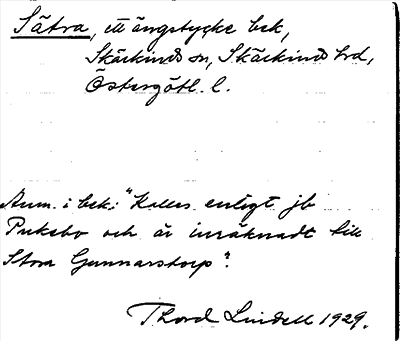 Sätra, ett ängstycke bek,
Skärkinds sn, Skärkinds hrd,
Östergötl. l.
Anm. i bek: "Kallas enligt jb
Pukebo och är inräknadt till
Stora Gunnarstorp".
Thord Lindell 1929.